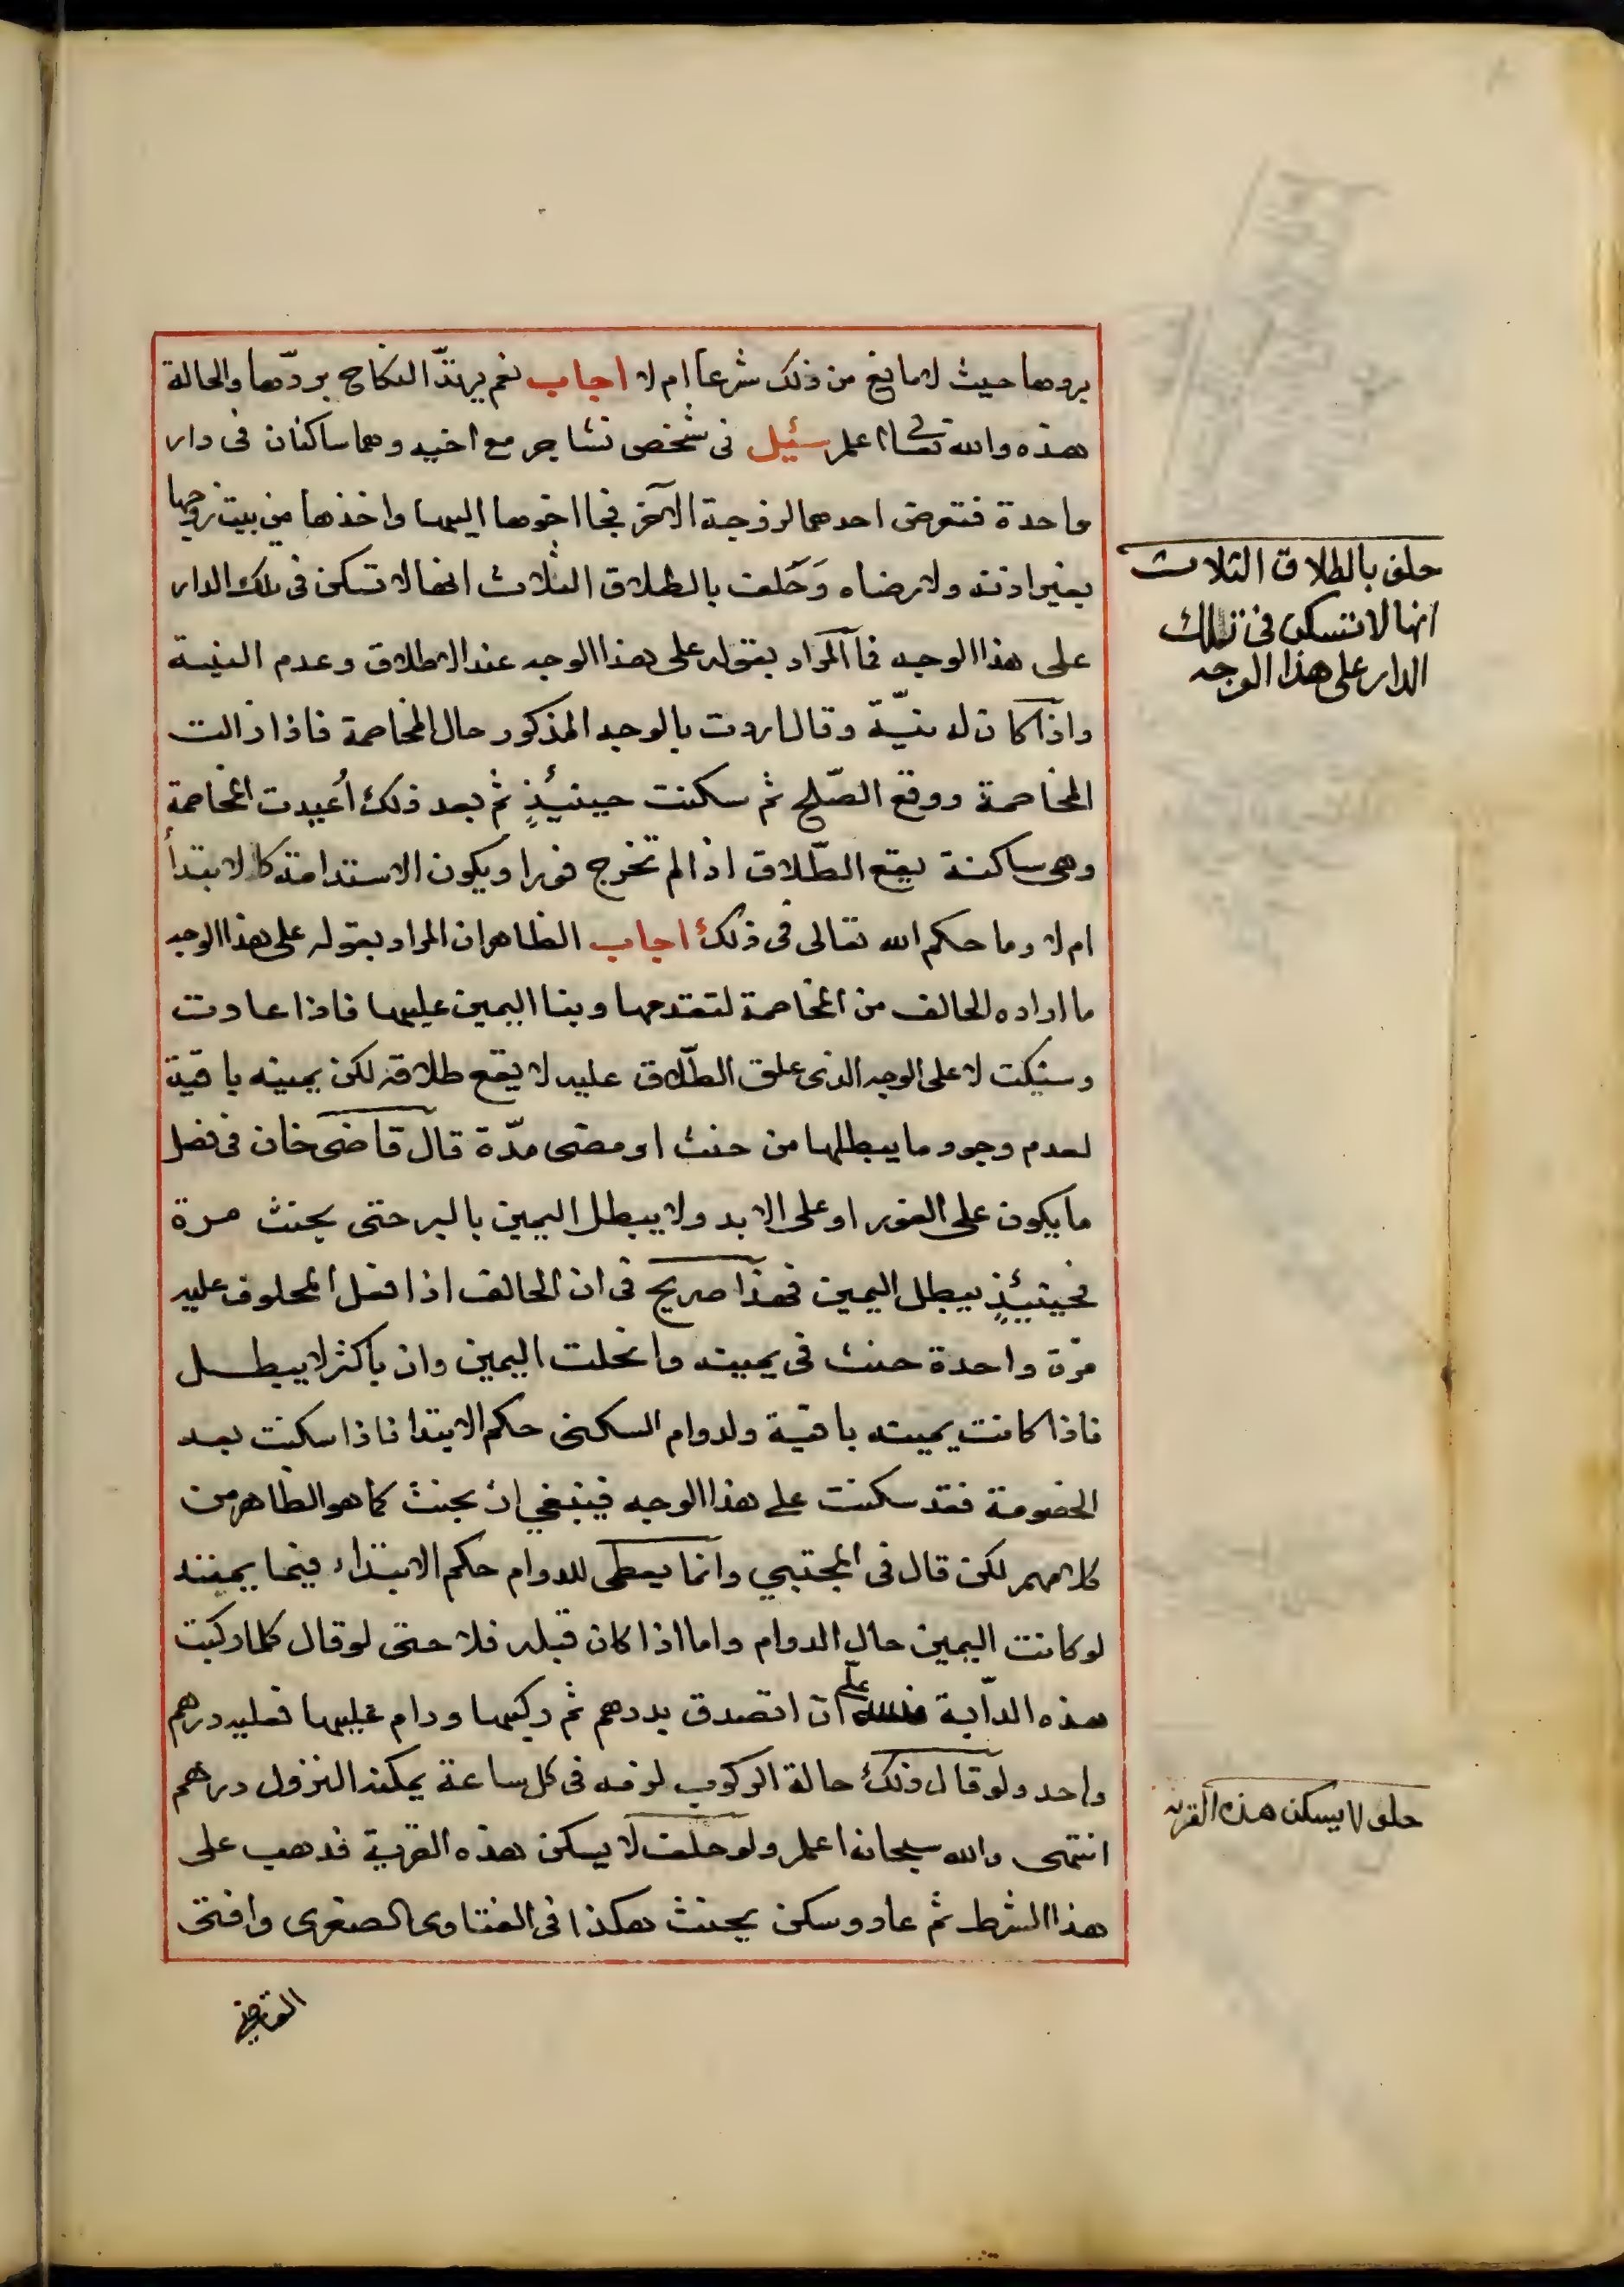 بردها حيث لا مانع من ذلك شرعا ام لا اجاب نعم يرتدّ النكاح بردّها والحالة
هذه والله تعالى اعلم سئيل فى شخص تشاجر مع اخيه وهما ساكنان فى دار
واحدة فتعرض احدهما لزوجة الآخر فجا اخوها اليها واخذها من بيت زوجها
بغير اذنه ولا رضاه وَحَلف بالطلاق الثلاث انها لا تسكن فى تلك الدار
على هذا الوجه فما المراد بقوله على هذا الوجه عند الاطلاق وعدم النية
واذا كان له نيّة وقال اردت بالوجه المذكور حال المخاصمة فاذا زالت
المخاصمة ووقع الصّلح ثم سكنت حينئيذٍ ثم بعد ذلك أعيدت المخاصمة
وهى ساكنة يقع الطّلاق اذا لم تخرج فورا ويكون الاستدامة كالابتدأ
ام لا وما حكم الله تعالى فى ذلك اجاب الظاهر ان المراد بقوله على هذا الوجه
ما اراده الحالف من المخاصمة لتقدمها وبنا اليمين عليها فاذا عادت
وسكنت لا على الوجه الذى علق الطّلاق عليه لا يقع طلاقه لكن يمينه باقية
لعدم وجود ما يبطلها من حنث او مضى مدّة قال قاضى خان فى فصل
ما يكون على الفور او على الابد ولا يبطل اليمين بالبر حتى يحنث مرة
فحينيئذٍ يبطل اليمين فهذا صريح فى ان الحالف اذا فعل المحلوف عليه
مرّة واحدة حنث فى يمينه وانحلت اليمين وان باكثر لا يبطل
فاذا كانت يمينه باقية ولدوام السكنى حكم الابتدا فاذا سكنت بعد
الخصومة فقد سكنت على هذا الوجه فينبغي ان يحنث كما هو الظاهر من
كلامهم لكن قال فى المجتبي وانما يعطى للدوام حكم الابتداء فيما يمتد
لو كانت اليمين حال الدوام واما اذا كان قبله فلا حتى لو قال كلما ركبت
هذه الدّابة فلله علىّ ان اتصدق بدرهم ثم ركبها ودام عليها فعليه درهم
واحد ولو قال ذلك حالة الركوب لزمه فى كل ساعة يمكنه النزول درهم
انتهى والله سبحانه اعلم ولو حلف لا يسكن هذه القرية فذهب على
هذا الشرط ثم عاد وسكن يحنث هكذا فى الفتاوى الصغرى وافتى
القاضى
حلف بالطلاق الثلاث
انها لا تسكن فى تلك
الدار على هذا الوجه
حلف لا يسكن هذه القريه